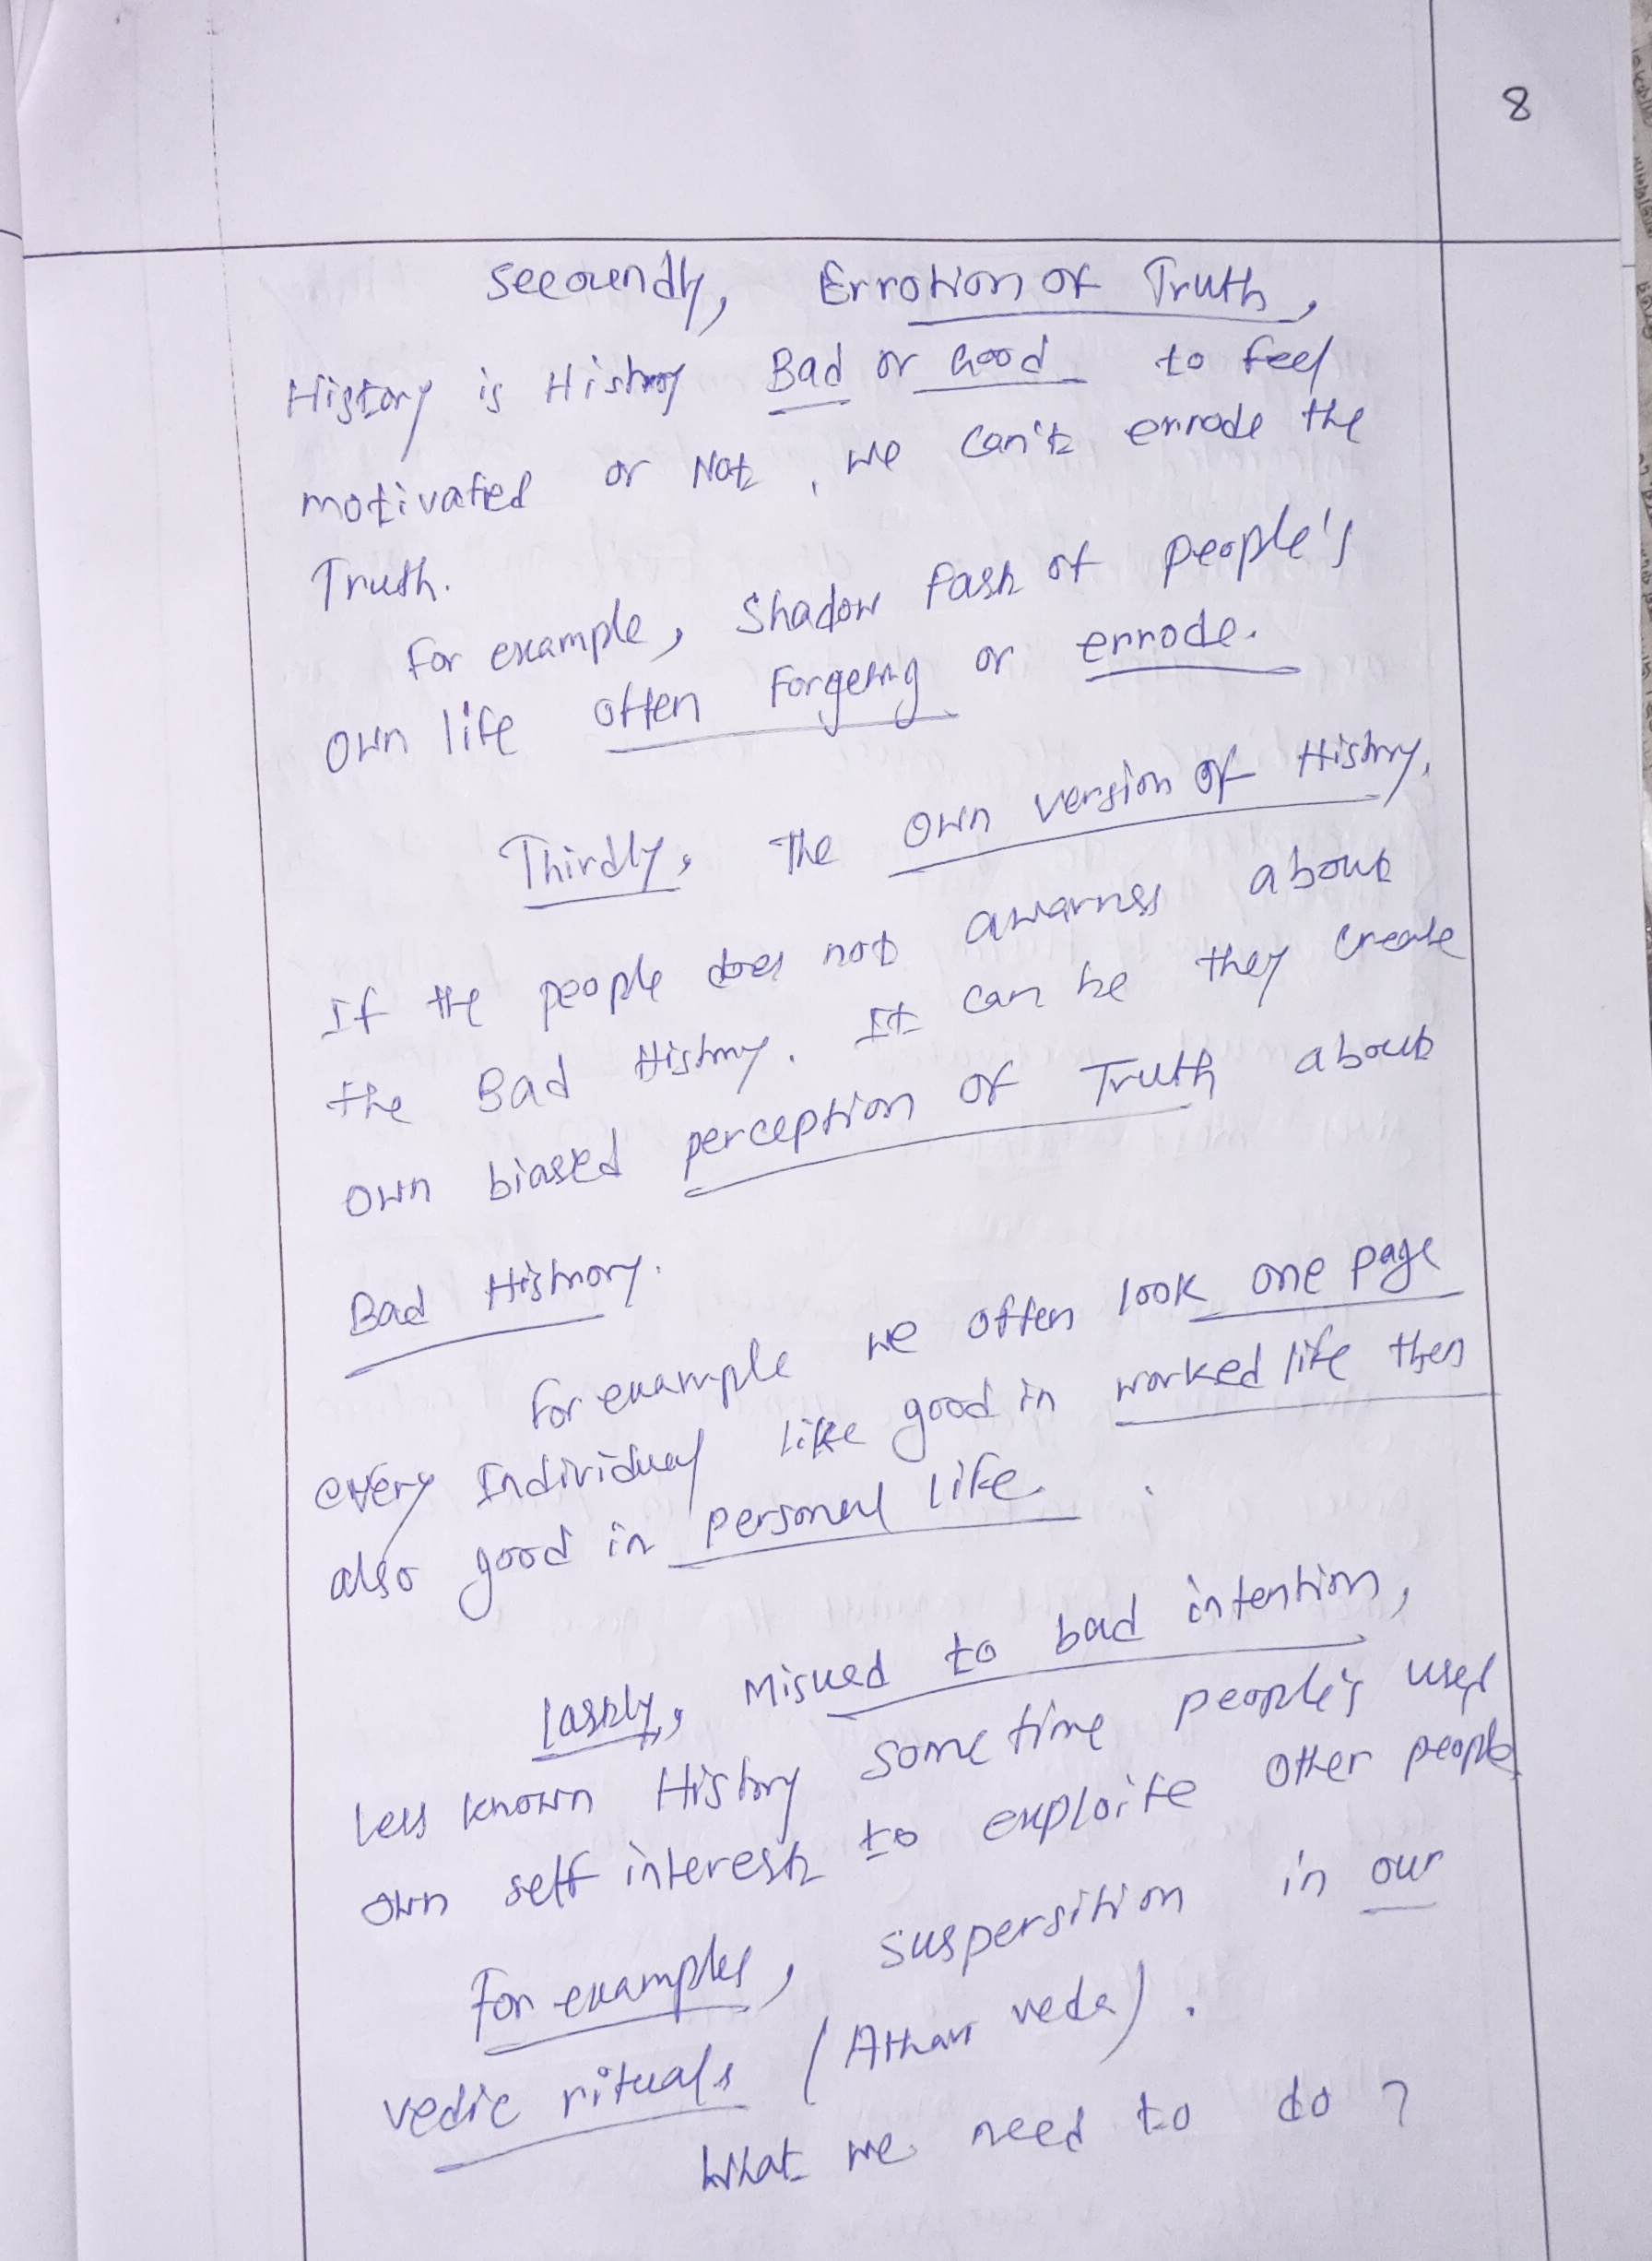 8
Secoundly, Errotion of Truth,
History is History Bad or Good to feel
motivated or Not, we can't errode the
Truth.
For example, Shadow Past of people's
own life often Forgeting or errode.
Thirdly, The own version of History,
If the people does not awarness about
the Bad History. It can be they create
own biased perception of Truth about
Bad History.
For example we often look one page
every Individual like good in worked life then
also good in personal life.
Lastly, Misued to bad intention,
less known History some time people's used
own self interest to exploite other people
For examples, suspersition in our
vedic rituals (Athar veda).
What we need to do ?